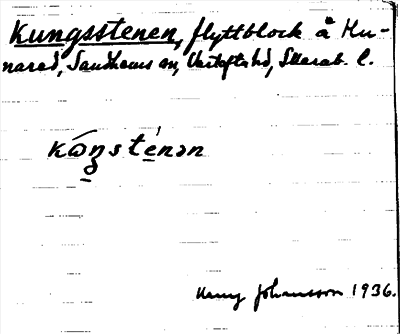 Kungsstenen, flyttblock å Hu-
nared, Sandhems sn, Vartofta hd, Skarab. l.
kω̄ŋsté̱nən
Harry Johansson 1936.